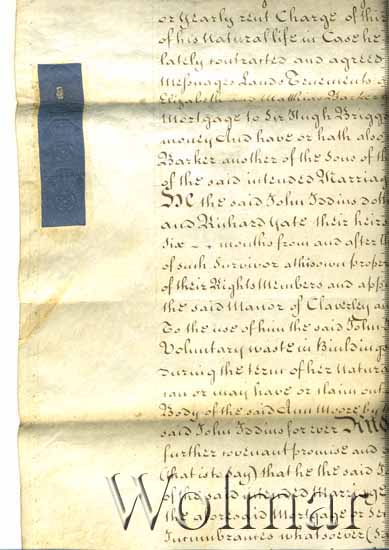 or yearly rent Charge of thir
of his Natural life in Case he
lately contracted and agreed
Messuages Lands Tenements
Elizabeth and Matthew
Mortgage to Sir Hugh Brigg
money And have or hath also
Barker another of the Sons of th
of the said intended Marriag
the said John Iddins doth
and Richard Yate their heir
Six months from and after th
of such Survivor at his own proper
of their Rights Members and app
the said Manor of Claverley a
To the use of him the said John
Voluntary waste in Buildings
during the term of her natura
can or may have or claim out
Body of the said Ann Moore by
said John Iddins for ever And
further covenant promise and
(that is to pay) that he the said I
of the said intended Marriage
the aforesaid Mortgage or
Incumbrances whatsoever
Wolmar